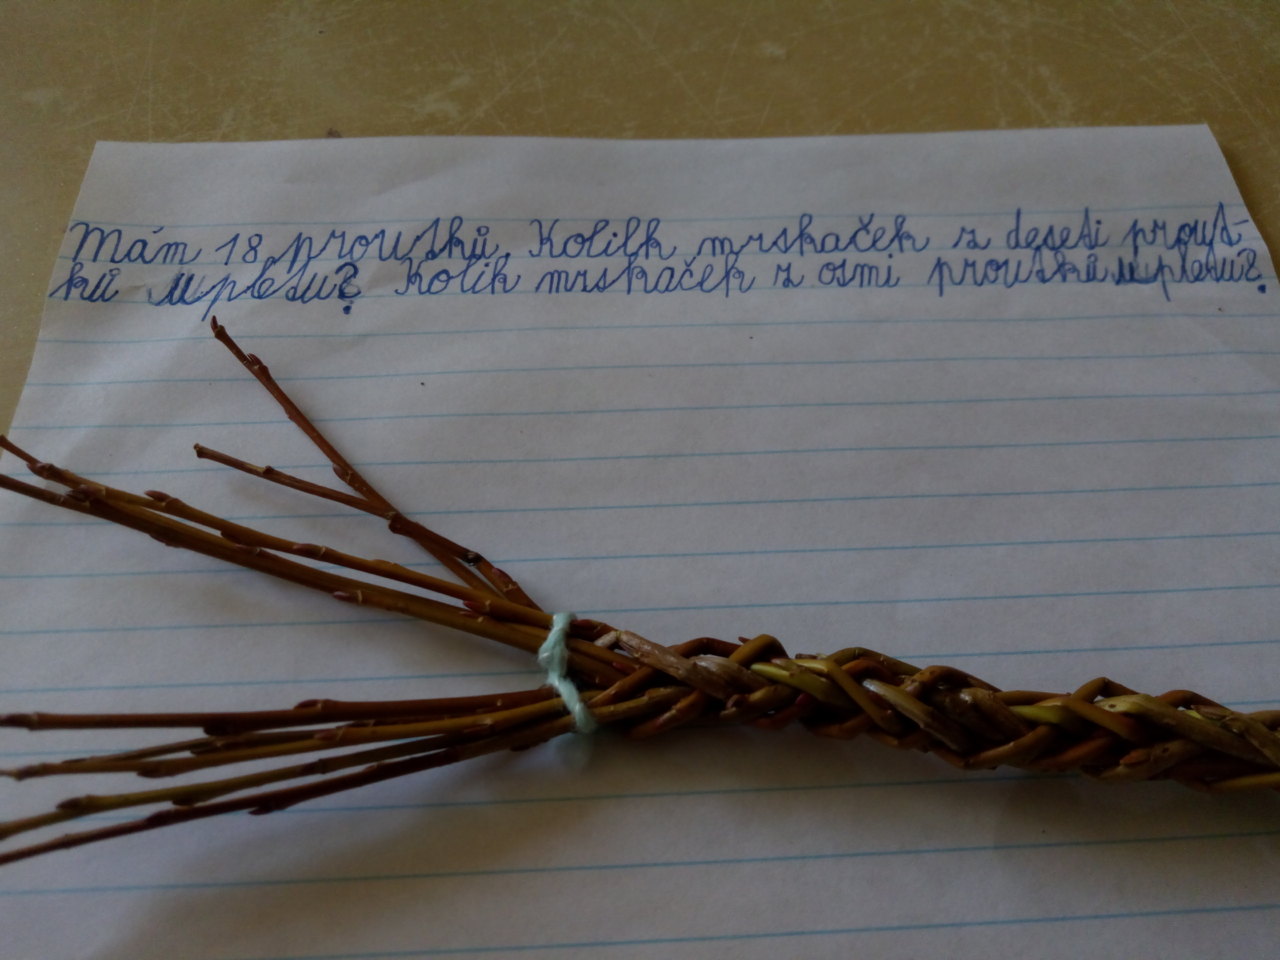 Mám 18 proutků. Kolik mrskaček z deseti prout-
ků upletu? Kolik mrskaček z osmi proutků upletu?